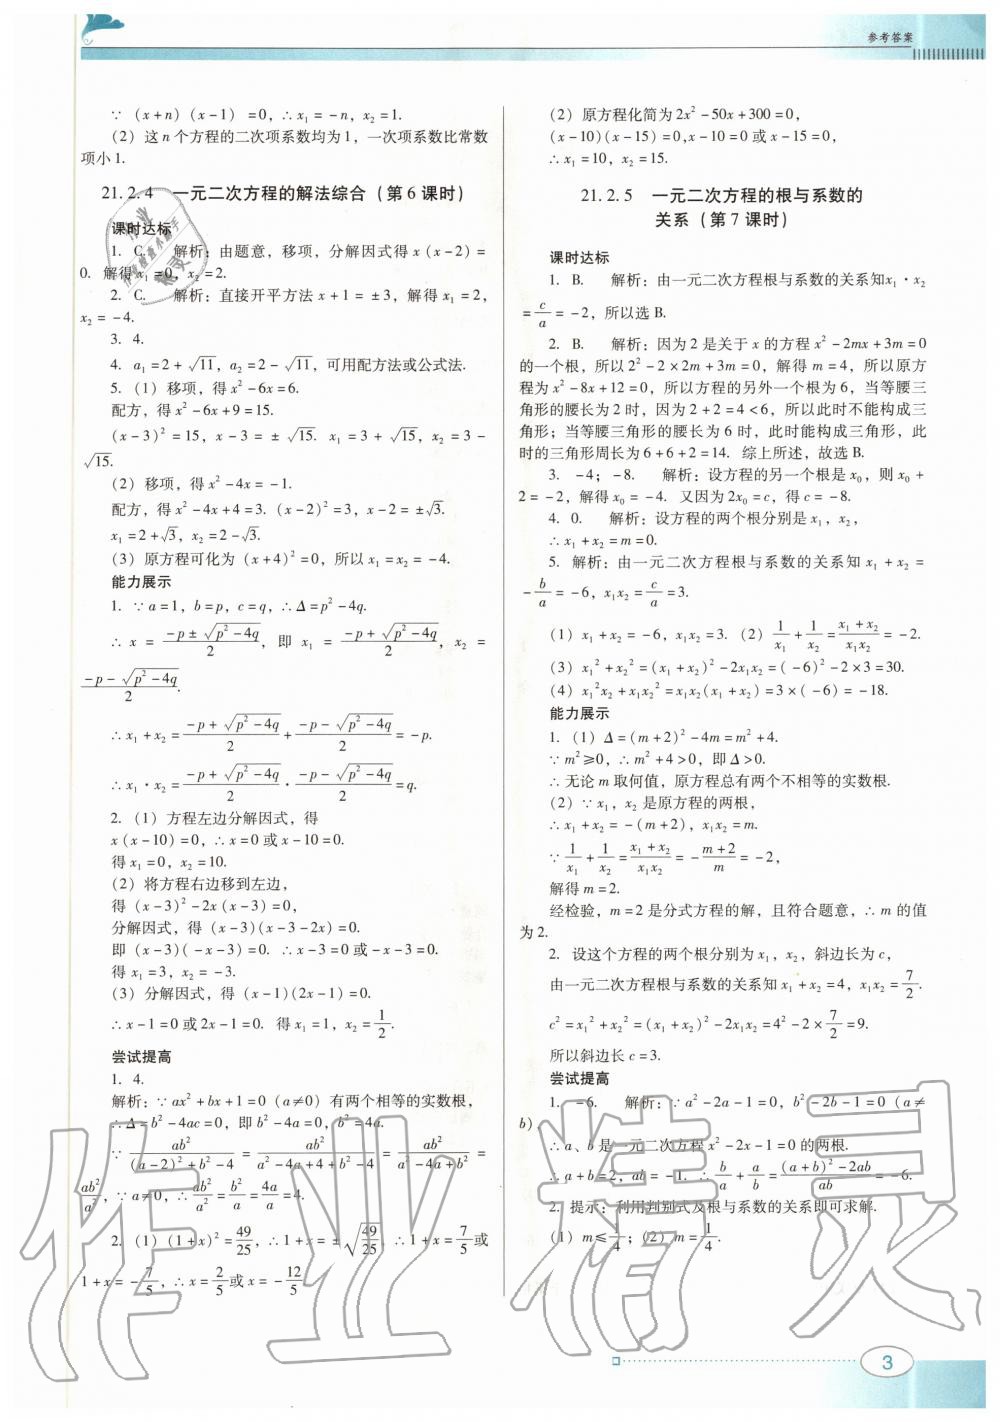 参考答案
∵（x+n）（x-1）=0，∴x₁=-n，x₂=1.
（2）这 n 个方程的二次项系数均为 1，一次项系数比常数
项小 1.
21.2.4　一元二次方程的解法综合（第 6 课时）
课时达标
1. C.　解析：由题意，移项，分解因式得 x（x-2）=
0. 解得 x₁=0，x₂=2.
2. C.　解析：直接开平方法 x+1=±3，解得 x₁=2，
x₂=-4.
3. 4.
4. a₁=2+√11，a₂=2-√11，可用配方法或公式法.
5.（1）移项，得 x²-6x=6.
配方，得 x²-6x+9=15.
（x-3）²=15，x-3=±√15. x₁=3+√15，x₂=3-
√15.
（2）移项，得 x²-4x=-1.
配方，得 x²-4x+4=3.（x-2）²=3，x-2=±√3.
x₁=2+√3，x₂=2-√3.
（3）原方程可化为（x+4）²=0，所以 x₁=x₂=-4.
能力展示
1. ∵a=1，b=p，c=q，∴Δ=p²-4q.
∴x=(-p±√(p²-4q))/2，即 x₁=(-p+√(p²-4q))/2，x₂=
(-p-√(p²-4q))/2.
∴x₁+x₂=(-p+√(p²-4q))/2+(-p-√(p²-4q))/2=-p.
∴x₁·x₂=(-p+√(p²-4q))/2·(-p-√(p²-4q))/2=q.
2.（1）方程左边分解因式，得
x（x-10）=0，∴x=0 或 x-10=0.
得 x₁=0，x₂=10.
（2）将方程右边移到左边，
得（x-3）²-2x（x-3）=0，
分解因式，得（x-3）(x-3-2x)=0.
即（x-3）(-x-3)=0. ∴x-3=0 或 -x-3=0.
得 x₁=3，x₂=-3.
（3）分解因式，得（x-1）(2x-1)=0.
∴x-1=0 或 2x-1=0. 得 x₁=1，x₂=1/2.
尝试提高
1. 4.
解析：∵ax²+bx+1=0（a≠0）有两个相等的实数根，
∴Δ=b²-4ac=0，即 b²-4a=0，b²=4a.
∵ab²/((a-2)²+b²-4)=ab²/(a²-4a+4+b²-4)=ab²/(a²-4a+b²)=
ab²/a²，∵a≠0，∴ab²/a²=b²/a=4a/a=4.
2.（1）（1+x）²=49/25，∴1+x=±√(49/25). ∴1+x=7/5 或
1+x=-7/5，∴x=2/5 或 x=-12/5.
（2）原方程化简为 2x²-50x+300=0，
（x-10）(x-15)=0，x-10=0 或 x-15=0，
∴x₁=10，x₂=15.
21.2.5　一元二次方程的根与系数的
关系（第 7 课时）
课时达标
1. B.　解析：由一元二次方程根与系数的关系知 x₁·x₂
=c/a=-2，所以选 B.
2. B.　解析：因为 2 是关于 x 的方程 x²-2mx+3m=0
的一个根，所以 2²-2×2m+3m=0，解得 m=4，所以原方
程为 x²-8x+12=0，所以方程的另外一个根为 6，当等腰三
角形的腰长为 2 时，因为 2+2=4<6，所以此时不能构成三
角形；当等腰三角形的腰长为 6 时，此时能构成三角形，此
时的三角形周长为 6+6+2=14. 综上所述，故选 B.
3. -4；-8.　解析：设方程的另一个根是 x₀，则 x₀+
2=-2，解得 x₀=-4. 又因为 2x₀=c，得 c=-8.
4. 0.　解析：设方程的两个根分别是 x₁，x₂，
∴x₁+x₂=m=0.
5. 解析：由一元二次方程根与系数的关系知 x₁+x₂=
-b/a=-6，x₁x₂=c/a=3.
（1）x₁+x₂=-6，x₁x₂=3.（2）1/x₁+1/x₂=(x₁+x₂)/(x₁x₂)=-2.
（3）x₁²+x₂²=（x₁+x₂）²-2x₁x₂=（-6）²-2×3=30.
（4）x₁²x₂+x₁x₂²=x₁x₂(x₁+x₂)=3×（-6）=-18.
能力展示
1.（1）Δ=（m+2）²-4m=m²+4.
∵m²≥0，∴m²+4>0，即 Δ>0.
∴无论 m 取何值，原方程总有两个不相等的实数根.
（2）∵x₁，x₂ 是原方程的两根，
∴x₁+x₂=-（m+2），x₁x₂=m.
∵1/x₁+1/x₂=(x₁+x₂)/(x₁x₂)=-(m+2)/m=-2，
解得 m=2.
经检验，m=2 是分式方程的解，且符合题意，∴m 的值
为 2.
2. 设这个方程的两个根分别为 x₁，x₂，斜边长为 c，
由一元二次方程根与系数的关系知 x₁+x₂=4，x₁x₂=7/2.
c²=x₁²+x₂²=（x₁+x₂）²-2x₁x₂=4²-2×7/2=9.
所以斜边长 c=3.
尝试提高
1. -6.　解析：∵a²-2a-1=0，b²-2b-1=0（a≠
b），
∴a、b 是一元二次方程 x²-2x-1=0 的两根.
∴a+b=2，ab=-1. ∴b/a+a/b=((a+b)²-2ab)/ab=-6.
2. 提示：利用判别式及根与系数的关系即可求解.
（1）m≤1/4；（2）m=1/4.
3
作业精灵